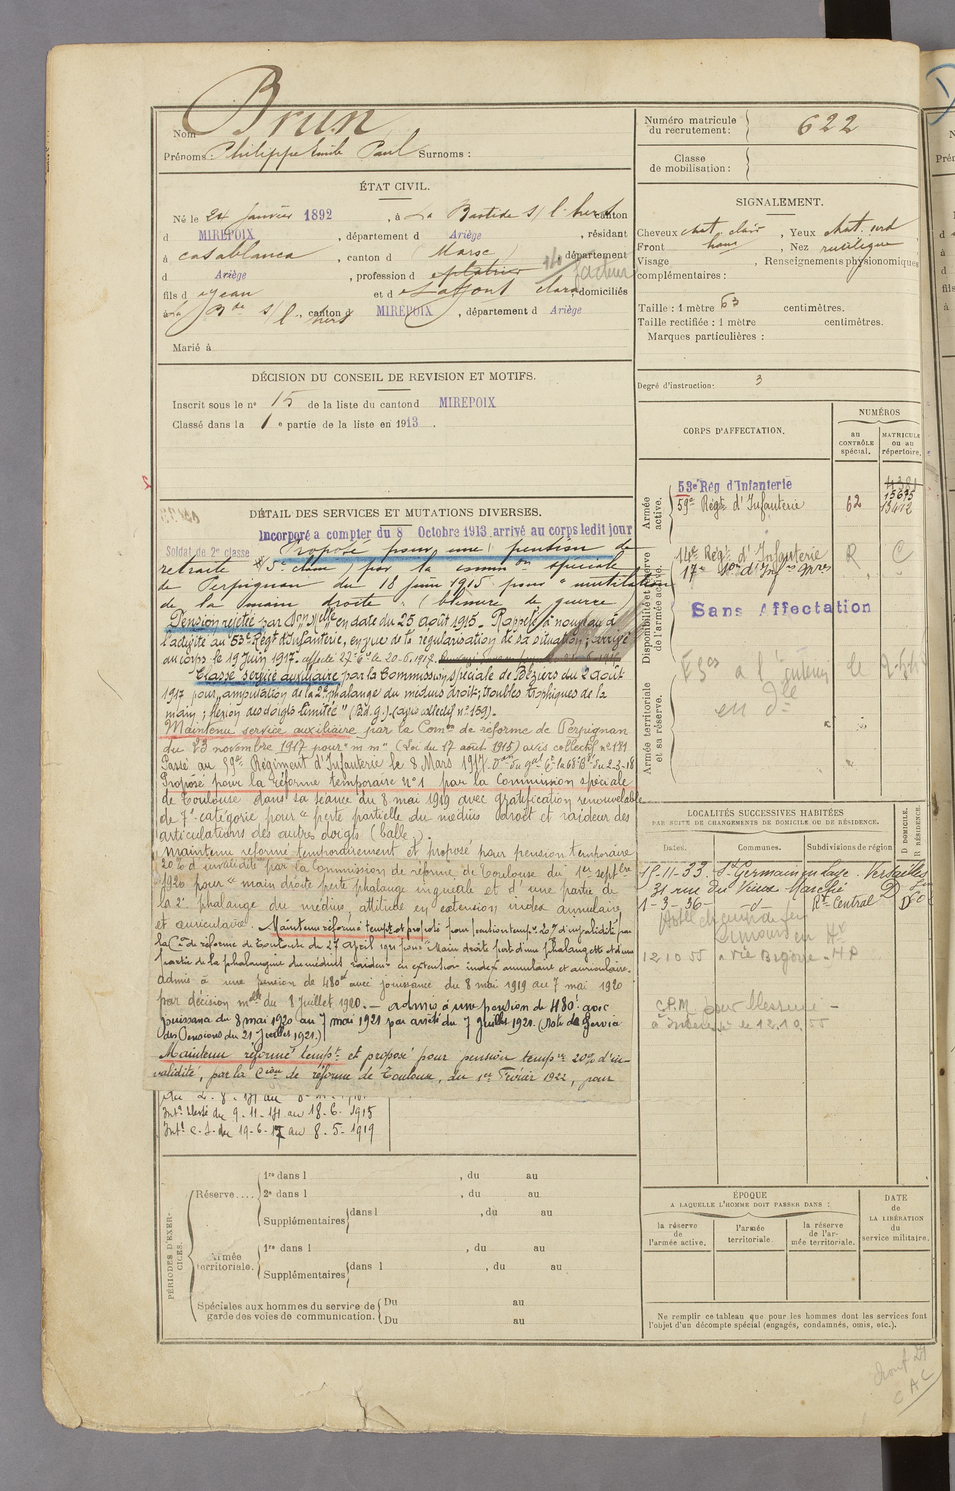 Nom Brun
Prénoms : Philippe Emile Paul Surnoms :
ÉTAT CIVIL.
Né le 24 janvier 1892, à La Bastide s/ l'hers canton
d MIREPOIX, département d Ariège, résidant
à Casablanca, canton d (Maroc) département
d Ariège, profession d plâtrier facteur
fils d Jean et d Laffont Clara, domiciliés
à la Bde s/ l'hers, canton d MIREPOIX, département d Ariège
Marié à
DÉCISION DU CONSEIL DE REVISION ET MOTIFS.
Inscrit sous le no 15 de la liste du canton d MIREPOIX
Classé dans la 1e partie de la liste en 1913.
DÉTAIL DES SERVICES ET MUTATIONS DIVERSES.
Incorporé a compter du 8 Octobre 1913. arrivé au corps ledit jour
Soldat de 2e classe Proposé pour une pension de
retraite 5e classe par la comm on spéciale
de Perpignan du 18 juin 1915 pour "mutilation
de la main droite" (blessure de guerre
Pension rejetée par Don Mlle en date du 25 août 1915. Rappelé à nouveau à
l'activité au 53e Régt d'Infanterie, en vue de la régularisation de sa situation ; arrivé
au corps le 19 Juin 1917. affecté 27e Cie le 20-6-1917.
Classé service auxiliaire par la Commission spéciale de Béziers du 2 août
1917 pour "amputation de la 2e phalange du médius droit ; troubles trophiques de la
main ; flexion des doigts limitée" (Bl. d. g.) (avis collectif no 159).
Maintenu service auxiliaire par la Comon de réforme de Perpignan
du 23 novembre 1917 pour "m m" (Loi du 17 août 1915) avis collectif no 181
Passé au 59e Régiment d'Infanterie le 8 Mars 1918.
Proposé pour la réforme temporaire no 1 par la Commission spéciale
de Toulouse dans sa séance du 8 mai 1919 avec gratification renouvelable
de 7e catégorie pour "perte partielle du médius droit et raideur des
articulations des autres doigts (balle)."
Maintenu réformé temporairement et proposé pour pension temporaire
20% d'invalidité par la Commission de réforme de Toulouse du 1er septbre
1920 pour "main droite perte phalange unguéale et d'une partie de
la 2e phalange du médius, attitude en extension index annulaire
et auriculaire. Maintenu réformé tempt et proposé pour pension tempre 20% d'invalidité par
la Con de réforme de Toulouse du 27 avril 1921 pour "Main droite perte d'une phalangette et d'une
partie de la phalangine du médius raideur en extension index annulaire et auriculaire.
admis à une pension de 480f avec jouissance du 8 mai 1919 au 7 mai 1920
par décision mlle du 8 Juillet 1920. — admis à une pension de 480f avec
jouissance du 8 mai 1920 au 7 mai 1921 par arrêté du 7 Juillet 1921. (Note du Service
des Pensions du 21 Juillet 1921.)
Maintenu réformé tempt et proposé pour pension tempre 20% d'in-
validité, par la Cion de réforme de Toulouse, du 1er Février 1922, pour
Intr blessé du 9-11-14 au 18-6-1915
Intr C.S. du 19-6-17 au 8-5-1919
PÉRIODES D'EXER-
CICES.
Réserve.... 1re dans l , du au
2e dans l , du au
Supplémentaires dans l , du au
Armée
territoriale. 1re dans l , du au
Supplémentaires dans l , du au
Spéciales aux hommes du service de
garde des voies de communication. Du au
Du au
Numéro matricule
du recrutement : 622
Classe
de mobilisation :
SIGNALEMENT.
Cheveux chat. clair, Yeux chat. verd
Front haut, Nez rectiligne
Visage , Renseignements physionomiques
complémentaires :
Taille : 1 mètre 63 centimètres.
Taille rectifiée : 1 mètre centimètres.
Marques particulières :
Degré d'instruction : 3
CORPS D'AFFECTATION.
NUMÉROS
au
CONTRÔLE
spécial.
MATRICULE
ou au
répertoire.
Armée
active.
53e Rég d'Infanterie
59e Régt d'Infanterie 62 15695
13412
Disponibilité et réserve
de l'armée active.
14e Régt d'Infanterie R C
17e Son d'Infirs Mres
Sans Affectation
Armée territoriale
et sa réserve.
LOCALITÉS SUCCESSIVES HABITÉES
PAR SUITE DE CHANGEMENTS DE DOMICILE OU DE RÉSIDENCE.
Dates. Communes. Subdivisions de région D DOMICILE. R RÉSIDENCE.
15-11-33 St Germain en Laye. Versailles
31 rue du Vieux Marché D
1-3-36 - d - Rt Central D
Hotel chemin de fer
12 10 55 Vic Bigorre - HP
C.P.M. pour blessure -
ÉPOQUE
A LAQUELLE L'HOMME DOIT PASSER DANS :
la réserve
de
l'armée active.
l'armée
territoriale.
la réserve
de l'ar-
mée territoriale.
DATE
de
LA LIBÉRATION
du
service militaire.
Ne remplir ce tableau que pour les hommes dont les services font
l'objet d'un décompte spécial (engagés, condamnés, omis, etc.).
CAC